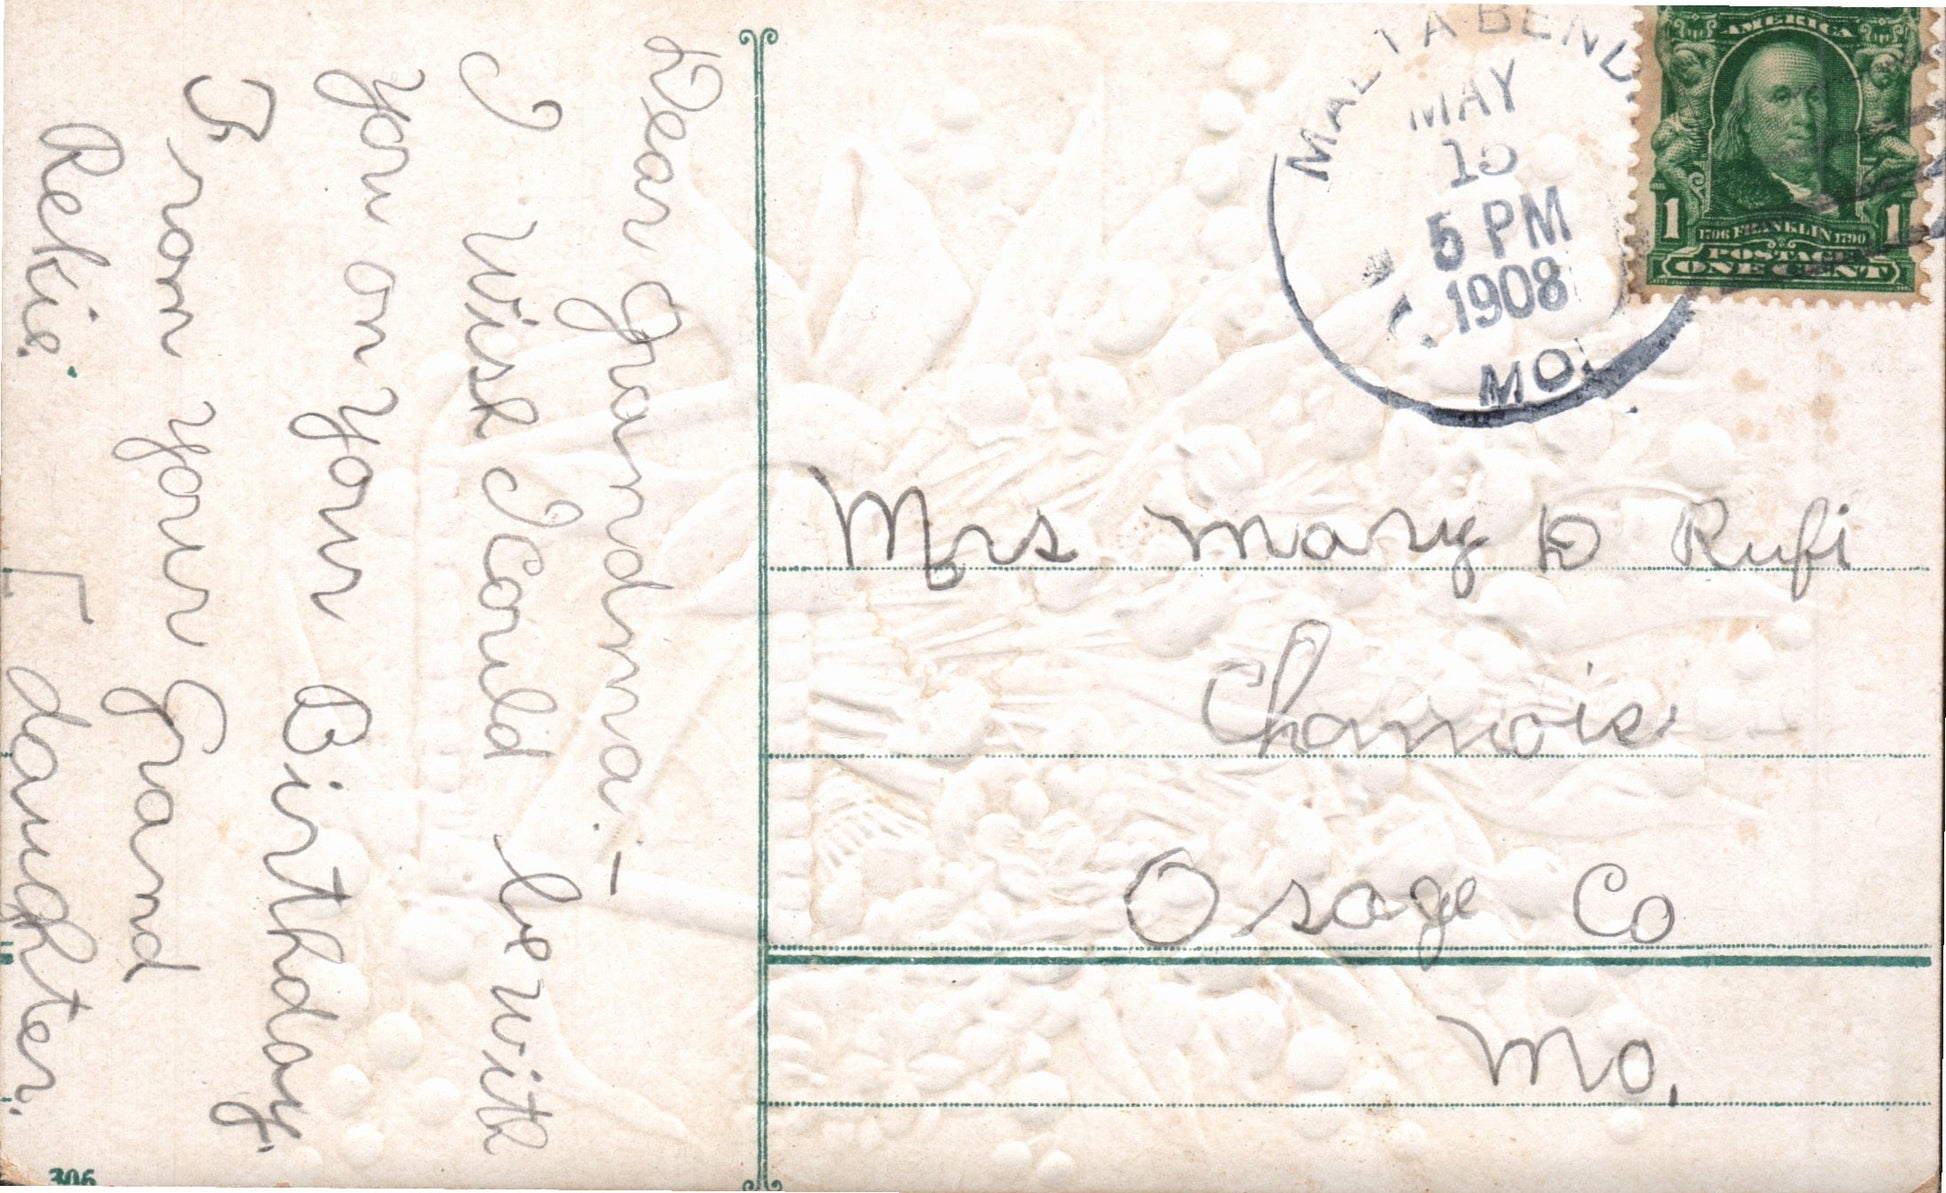 Dear Grandma.—
I Wish I Could be with
you on your Birthday,
From your Grand
Rekie. daughter.
MALTA BEND
MAY
15
5 PM
1908
MO.
AMERICA
1 1706 FRANKLIN 1790 1
POSTAGE
ONE CENT
Mrs Mary D Rufi
Chamois
Osage Co
Mo,
306